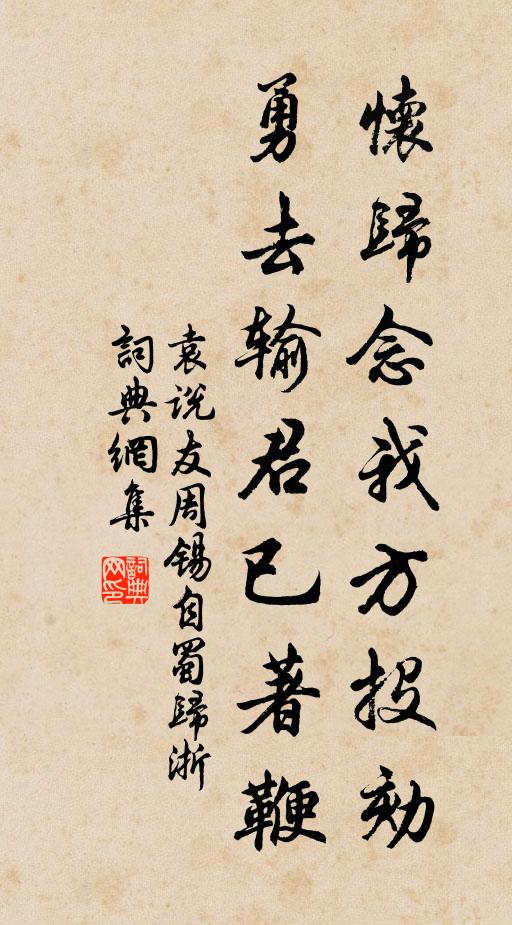 懷歸念我方投劾
勇去输君已著鞭
袁说友周锡自蜀歸浙
詞典網集
詞典网印